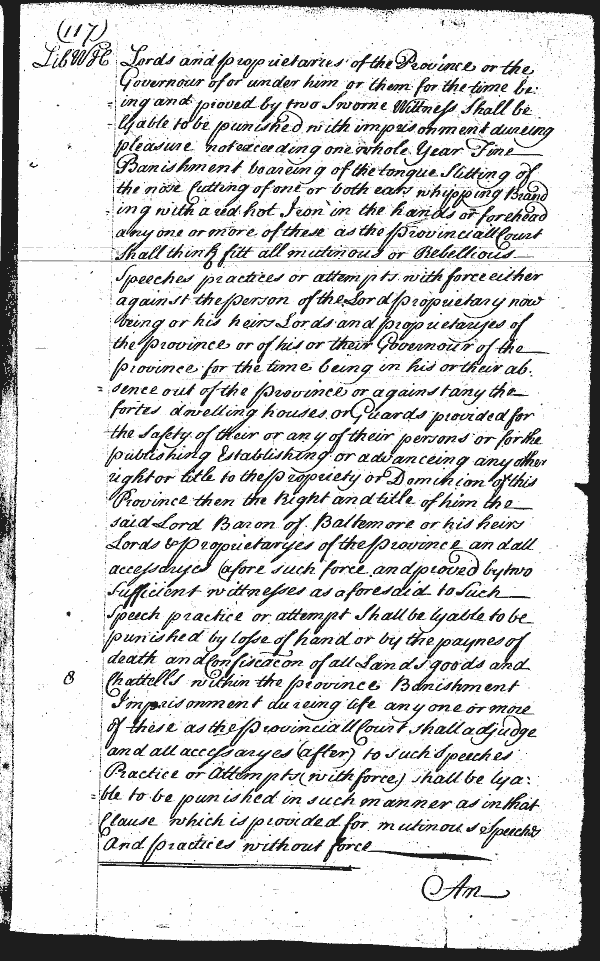 (117)
Lib W H
Lords and proprietaries of the Province or the
Governour of or under him or them for the time be:
ing and proved by two Sworne Wittness Shall be
lyable to be punished with imprisonment dureing
pleasure not exceeding one whole Year Fine
Banishment boareing of the tongue Slitting of
the nose Cutting of one or both ears whypping Brand
ing with a red hot Iron in the hands or forehead
any one or more of these as the Provinciall Court
Shall think fitt all mutinous or Rebellious
Speeches practices or attempts with force either
against the person of the Lord proprietary now
being or his heirs Lords and proprietaryes of
the province or of his or their Governour of the
province for the time being in his or their ab:
sence out of the Province or against any the
fortes dwelling houses or Guards provided for
the Safety of their or any of their persons or for the
publishing Establishing or advanceing any other
right or title to the propriety or Dominion of this
Province then the Right and title of him the
said Lord Baron of Baltemore or his heirs
Lords & Proprietaryes of the province and all
accessaryes (afore such force and proved by two
Sufficient wittnesses as aforesaid to Such
speech practice or attempt Shall be lyable to be
punished by losse of hand or by the paynes of
death and Confiscacon of all Lands goods and
8
Chattells within the province Banishment
Imprisonment dureing life any one or more
of these as the Provinciall Court shall adjudge
and all accessaryes (after) to such Speeches
Practice or Attempts (with force) shall be lya:
ble to be punished in such manner as in that
Clause which is provided for mutinous Speeches
And practices without force
An